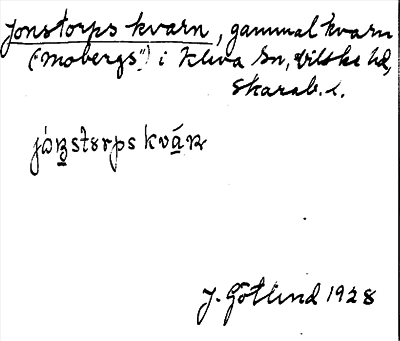 Jonstorps kvarn, gammal kvarn
("Mobergs") i Kleva sn, Vilske hd,
Skarab. l.
jòn̠stɷrps kvá̠ɳ
J. Götlind 1928